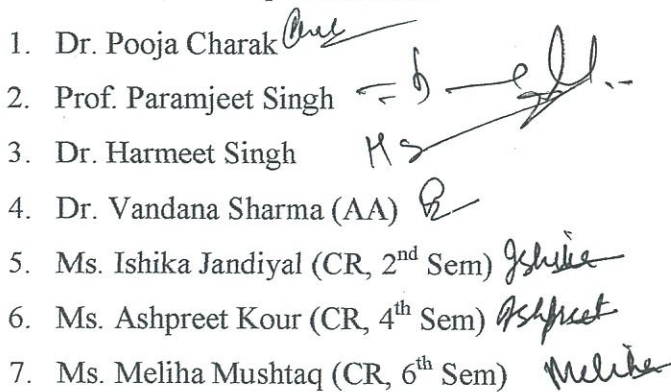 1. Dr. Pooja Charak
2. Prof. Paramjeet Singh
3. Dr. Harmeet Singh HS
4. Dr. Vandana Sharma (AA)
5. Ms. Ishika Jandiyal (CR, 2nd Sem) Ishika
6. Ms. Ashpreet Kour (CR, 4th Sem) Ashpreet
7. Ms. Meliha Mushtaq (CR, 6th Sem) Meliha